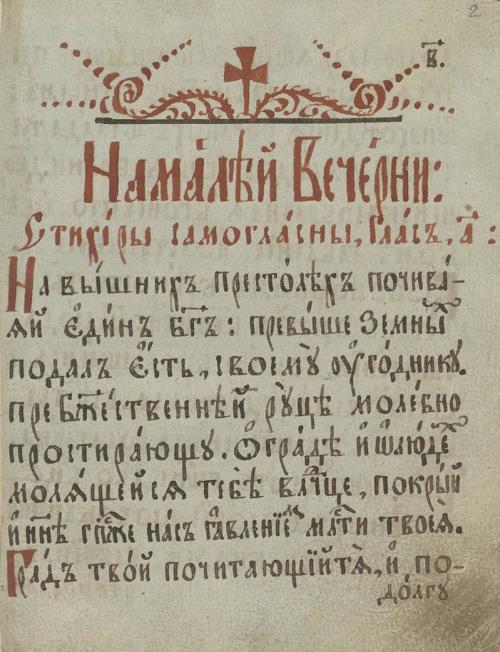 2
в҃.
На ма́лѣй Вече́рни:
Стихи́ры самогла́сны, Гла́съ, а҃:
На вы́шнихъ престо́лѣхъ почива́-
ѧй є҆ди́нъ бг҃ъ: превы́ше земны́хъ
пода́лъ є҆сть, своемꙋ̀ оу҆го́дникꙋ.
пребж҃е́ственнѣй рꙋ́цѣ моле́бно
простира́ющꙋ. Ѡ҆ гра́дѣ и҆ ѡ҆ лю́дехъ
молѧ́щейсѧ тебѣ̀ влⷣчце, покры́й
и҆ нн҃ѣ гпⷭ҇же на́съ ꙗ҆вле́нїемъ млⷭ҇ти твоеѧ̀.
Гра́дъ тво́й почита́ющїй тѧ̀, и҆ по-
до́лгꙋ